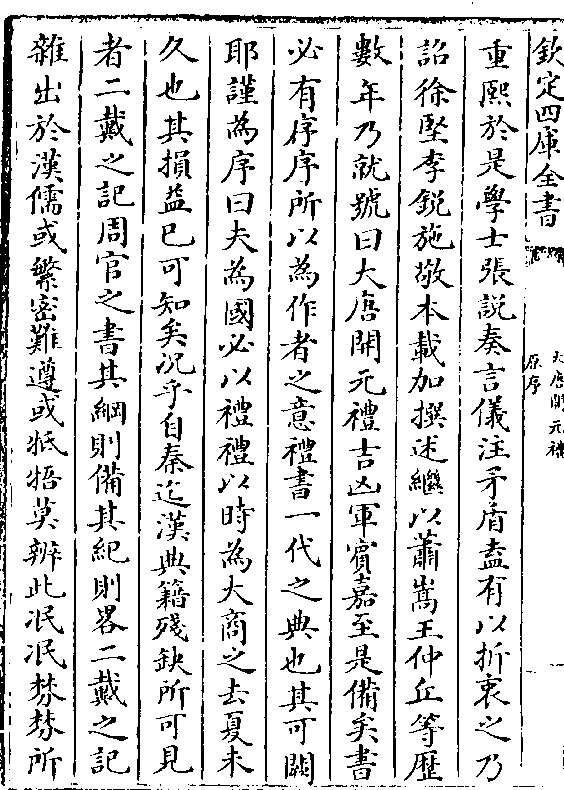 欽定四庫全書
大唐開元禮
原序
重熙於是學士張説奏言儀注矛盾盍有以折衷之乃
詔徐堅李鋭施敬本載加撰述繼以蕭嵩王仲丘等歴
數年乃就號曰大唐開元禮吉凶軍賓嘉至是備矣書
必有序序所以為作者之意禮書一代之典也其可闕
耶謹為序曰夫為國必以禮禮以時為大商之去夏未
久也其損益已可知矣况乎自秦迄漢典籍殘缺所可見
者二戴之記周官之書其綱則備其紀則畧二戴之記
雜出於漢儒或繁密難遵或牴牾莫辨此泯泯棼棼所